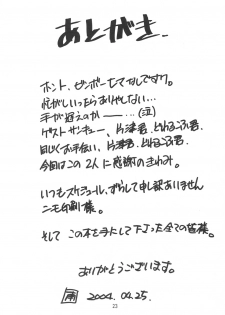 あとがき.
ホント、ビンボーヒマなしですっ。
忙がしいったらありゃしない…
手が遅えのか ―― …(泣)
ゲストサンキュー、片津君、とれるころ君、
同じくお手伝い、片津君、とれるころ君、
今回はこの2人に感謝のきわみ。
いつもスケジュール、ずらして申し訳ありません
ニモ印刷様。
そして この本を手にして下さった全ての皆様。
ありがとうございます。
2004.04.25.
23